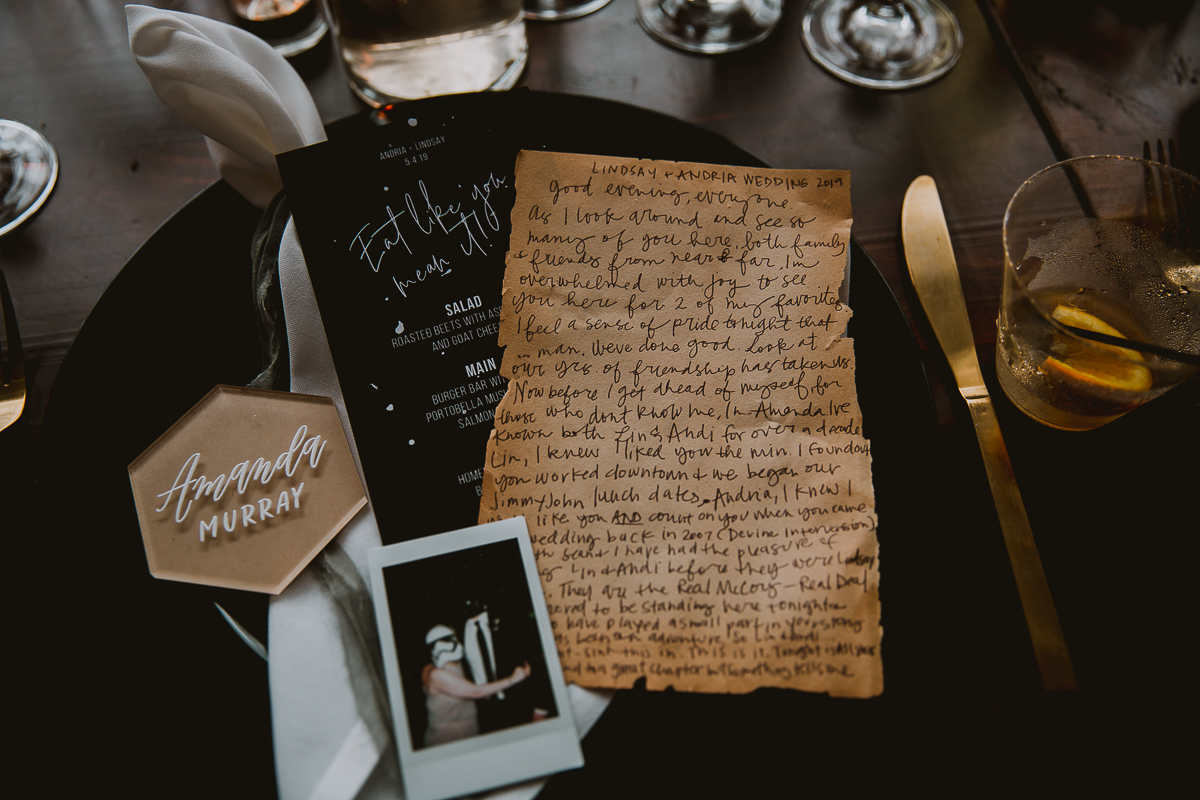 ANDRIA + LINDSAY
5.4.19
Eat like you
mean it!
SALAD
ROASTED BEETS WITH
AND GOAT CHEE
MAIN
BURGER BAR
PORTOBELLA
SALMON
HOME
Amanda
MURRAY
LINDSAY + ANDRIA WEDDING 2019
good evening, everyone
As I look around and see so
many of you here, both family
+ friends from near & far, Im
overwhelmed with joy to see
you here for 2 of my favorites
I feel a sense of pride tonight that
man. Weve done good. Look at
our yrs of friendship has taken us.
Now before I get ahead of myself, for
those who dont know me, Im Amanda. Ive
known both Lin & Andi for over a decade
Lin, I knew I liked you the min. I found out
you worked downtown & we began our
Jimmy John lunch dates. Andria, I knew I
like you AND count on you when you came
wedding back in 2007 (Devine Intervension)
I have had the pleasure of
Lin & Andi before they were Lindsay
They are the Real McCoy - Real Deal
to be standing here tonight
have played a small part in your
adventure. So Lin & Andi
this in. This is it. Tonight is All your
great chapter but something tells me